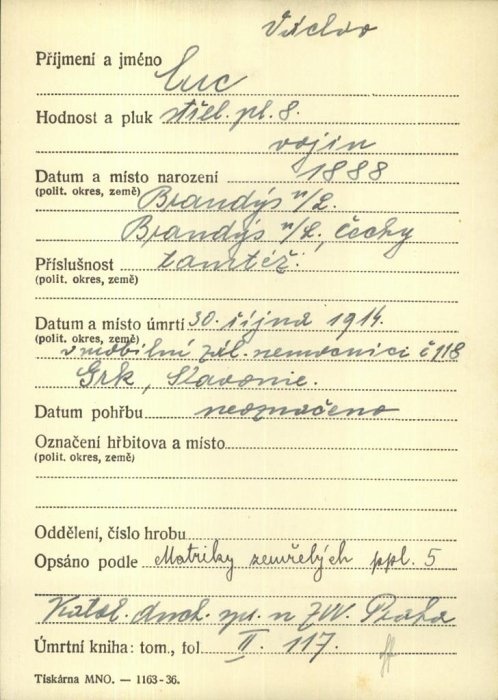 Václav
Příjmení a jméno Cuc
Hodnost a pluk střel. pl. 8.
vojín
Datum a místo narození 1888
(polit. okres, země) Brandýs n/L.
Brandýs n/L., Čechy
Příslušnost tamtéž.
(polit. okres, země)
Datum a místo úmrtí 30. října 1914.
(polit. okres, země)
v mobilní zál. nemocnici č 118
Grk, Slavonie.
Datum pohřbu neoznačeno
Označení hřbitova a místo
(polit. okres, země)
Oddělení, číslo hrobu
Opsáno podle Matriky zemřelých ppl. 5
Katol. duch. spr. n ZVV. Praha
Úmrtní kniha: tom., fol II. 117.
Tiskárna MNO. — 1163-36.